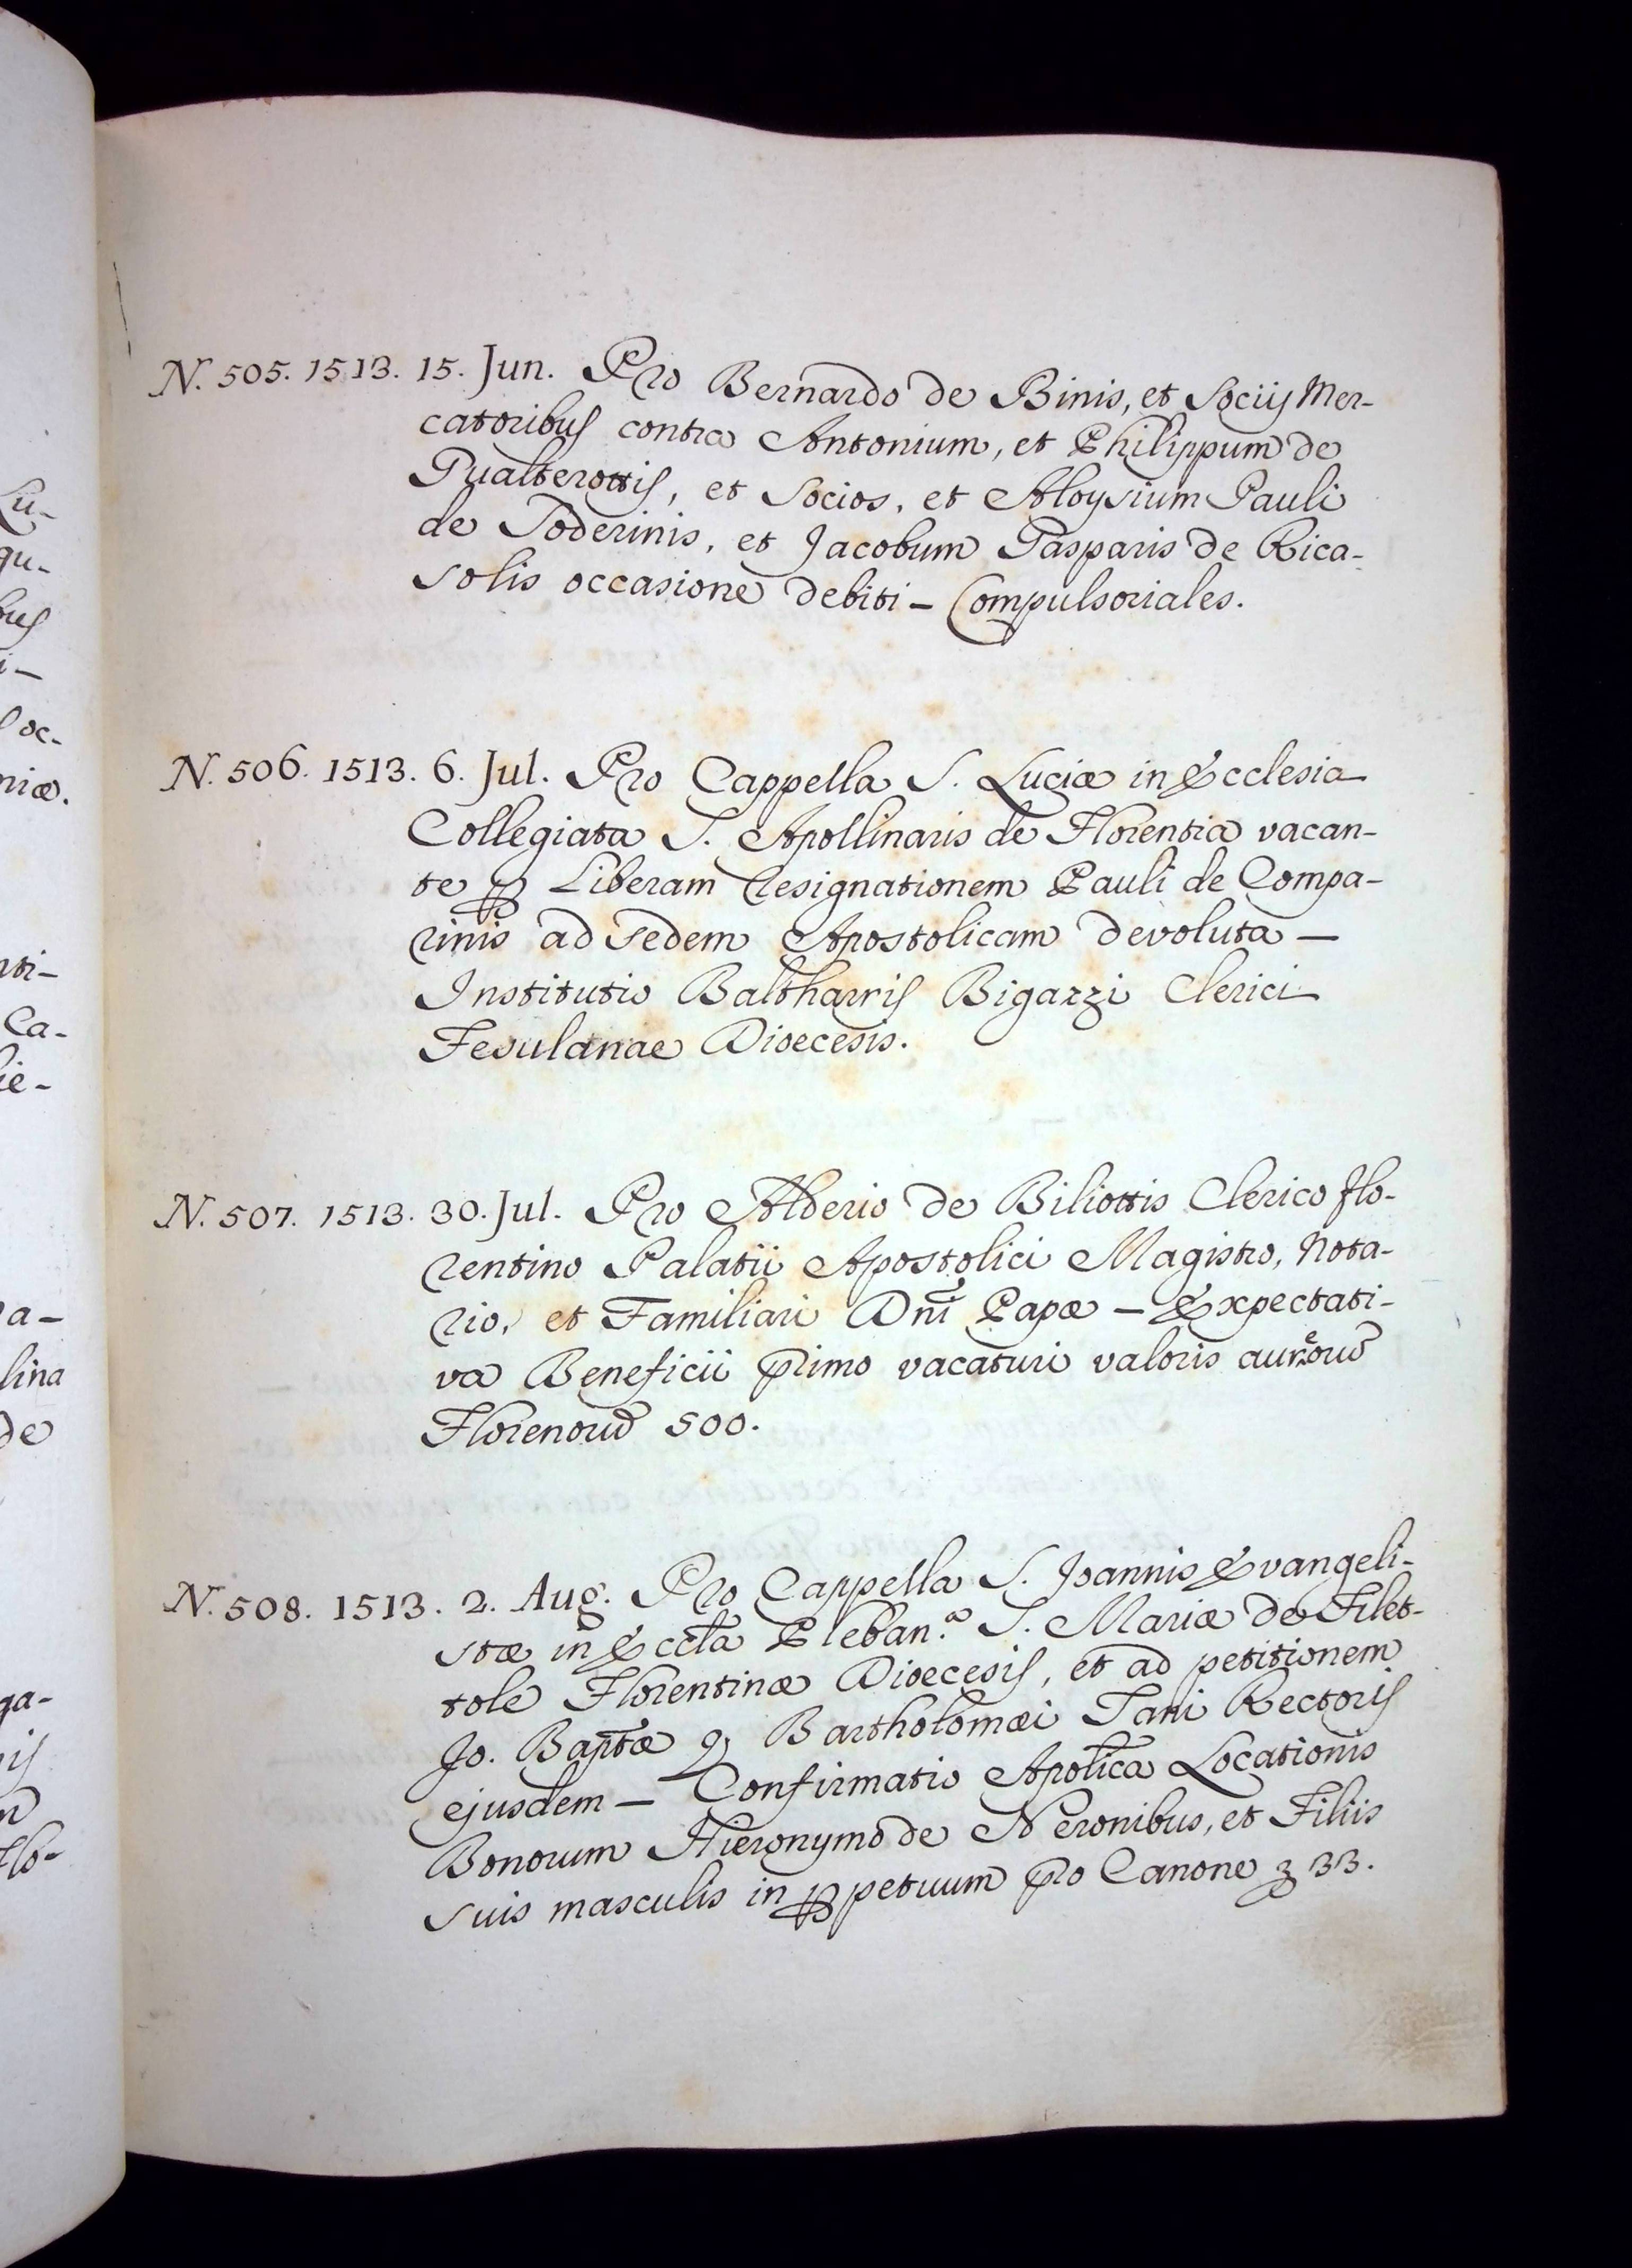 N. 505. 1513. 15. Jun. Pro Bernardo de Binis, et Sociis Mer-
catoribus contra Antonium, et Philippum de
Gualterottis, et Socios, et Aloysium Pauli
de Soderinis, et Jacobum Gasparis de Rica-
solis occasione debiti – Compulsoriales.
N. 506. 1513. 6. Jul. Pro Cappella S. Luciæ in Ecclesia
Collegiata S. Apollinaris de Florentia vacan-
te ꝑ Liberam resignationem Pauli de Compa-
rinis ad Sedem Apostolicam devoluta –
Institutio Baltharris Bigazzi Clerici
Fesulanae Dioecesis.
N. 507. 1513. 30. Jul. Pro Alderio de Biliottis Clerico Flo-
rentino Palatii Apostolici Magistro, Nota-
rio, et Familiari Dn̄i Papæ – Expectati-
va Beneficii p̄rimo vacaturi valoris aureoru̅
Florenoru̅ 500.
N. 508. 1513. 2. Aug. Pro Cappella S. Joannis Evangeli-
stæ in Eccl̄a Pleban.ª S. Mariæ de Filet-
tole Florentinæ Dioecesis, et ad petitionem
Jo. Bap̄tæ q. Bartholomæi Tani Rectoris
ejusdem – Confirmatio Apol̄ica Locationis
Bonorum Hieronymo de Neronibus, et Filiis
suis masculis in ꝑpetuum p̄ro Canone 33.